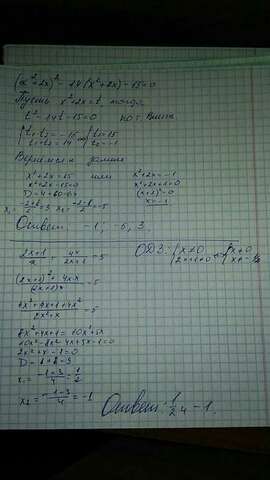 (x²+2x)² - 14(x²+2x) - 15=0
Пусть x²+2x=t, тогда
t² - 14t - 15=0 по т. Виета
{t₁t₂ = -15 {t₁=15
t₁+t₂ = 14 t₂ = -1
Вернемся к замене
x²+2x=15 или x²+2x=-1
x²+2x-15=0 x²+2x+1=0
D=4+60=64 (x+1)²=0
x₁=(-2+8)/2=3 x₂=(-2-8)/2=-5 x=-1
Ответ: -1; -5; 3.
(2x+1)/x + 4x/(2x+1) = 5 ОДЗ: {x≠0 {x≠0
2x+1≠0 x≠-1/2
((2x+1)²+4x·x)/((2x+1)x) = 5
(4x²+4x+1+4x²)/(2x²+x) = 5
8x²+4x+1=10x²+5x
10x²-8x²-4x+5x-1=0
2x²+x-1=0
D=1+8=9
x₁=(-1+3)/4=1/2
x₂=(-1-3)/4=-1
Ответ: 1/2 и -1.